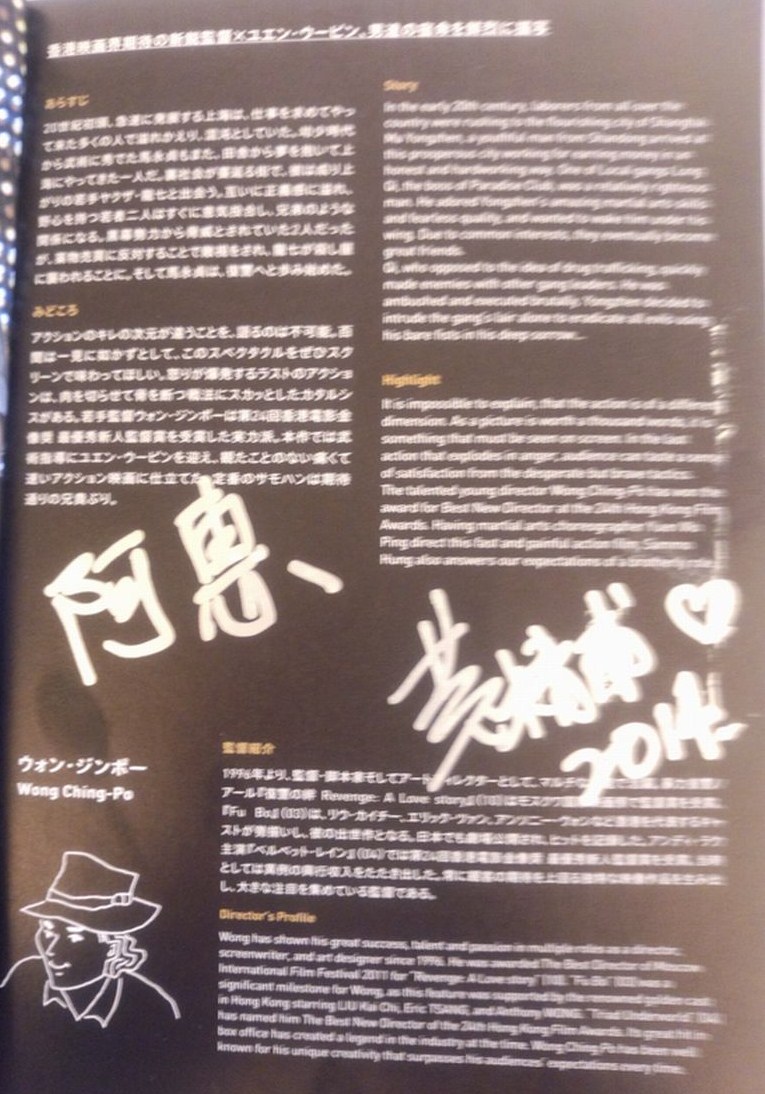 香港映画界期待の新鋭監督×ユエン・ウーピン。男達の宿命を鮮烈に描写
あらすじ
20世紀初頭、急速に発展する上海は、仕事を求めてやっ
て来た多くの人で溢れかえり、混沌としていた。幼少時代
から武術に秀でた馬永貞もまた、田舎から夢を抱いて上
海にやってきた一人だ。裏社会が蔓延る街で、彼は成り上
がりの若手ヤクザ・龍七と出会う。互いに正義感に溢れ、
野心を持つ若者二人はすぐに意気投合し、兄弟のような
関係になる。黒幕勢力から脅威とされていた2人だった
が、薬物売買に反対することで敵視をされ、龍七が殺し屋
に襲われることに。そして馬永貞は、復讐へと歩み始めた。
みどころ
アクションのキレの次元が違うことを、語るのは不可能。百
聞は一見に如かずとして、このスペクタクルをぜひスク
リーンで味わってほしい。怒りが爆発するラストのアクショ
ンは、肉を切らせて骨を断つ戦法にスカッとしたカタルシ
スがある。若手監督ウォン・ジンポーは第24回香港電影金
像奨 最優秀新人監督賞を受賞した実力派。本作では武
術指導にユエン・ウーピンを迎え、観たことのない痛くて
速いアクション映画に仕立てた。定番のサモハンは期待
通りの兄貴ぶり。
Story
In the early 20th century, laborers from all over the
country were rushing to the flourishing city of Shanghai.
Ma Yongzhen, a youthful man from Shandong joined
this prosperous city
honest and hardworking way. One of Local gangs Long
Qi, the boss of Paradise Club, was a relatively righteous
man. He adored Yongzhen's amazing martial arts skills
and fearless quality, and wanted to take him under his
wing. Due to common interests, they eventually become
great friends.
Qi, who opposed to the idea of drug trafficking, quickly
made enemies with other gang leaders. He was
ambushed and executed brutally. Yongzhen decided to
intrude the gang's lair alone to eradicate all
his bare fists in his deep sorrow...
Highlight
It is impossible to explain, that the action is of a different
dimension. As a picture is worth a thousand words, it is
something that must be seen on screen. In the last
action that explodes in anger, audience can
of satisfaction from the desperate
The talented young director Wong Ching-Po has won the
award for Best New Director at the 24th Hong Kong Film
Awards. Having martial arts choreographer Yuen Wo
Ping direct this fast and painful action film, Sammo
Hung also answers our expectations of a brotherly
阿惠、
黃精甫♡
2014
ウォン・ジンポー
Wong Ching-Po
監督紹介
1996年より、監督・脚本家そしてアートディレクターとして、マルチな
アール『復讐の絆 Revenge: A Love story』(10)はモスクワ
『Fu Bo』(03)は、リウ・カイチー、エリック・ツァン、アンソニー・ウォンなど香港を代表するキャ
ストが勢揃いし、彼の出世作となる。日本でも劇場公開され、ヒットを記録した、アンディ・ラウ
主演『ベルベット・レイン』(04)では第24回香港電影金像奨 最優秀新人監督賞を受賞。
としては異例の興行収入をたたき出した。常に観客の期待を上回る
し、大きな注目を集めている監督である。
Director's Profile
Wong has shown his great success, talent and passion in multiple roles as a director,
screenwriter, and art designer since 1996. He was awarded The Best Director of Moscow
International Film Festival 2011 for "Revenge: A Love story" (10). "Fu Bo" (03) was a
significant milestone for Wong, as this feature was supported by the renowned golden cast
in Hong Kong starring LIU Kai Chi, Eric TSANG, and Anthony WONG. "Triad Underworld" (04)
has named him The Best New Director of the 24th Hong Kong Film Awards. Its great hit in
box office has created a legend in the industry at the time. Wong Ching-Po has been well
known for his unique creativity that surpasses his audiences' expectations every time.